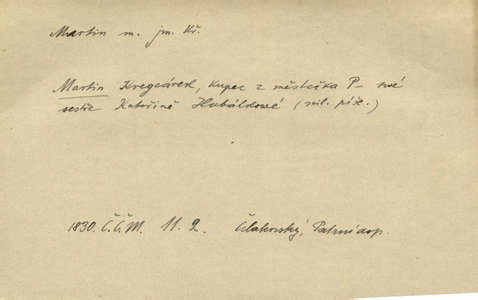 Martin m. jm. Kř.
Martin Kregcárek, kupec z městečka P– své
sestře Kateřině Hubálkowé (mil. píše.)
1830. Č.Č.M. 11. 2. Čelakovský, Patrní dop.